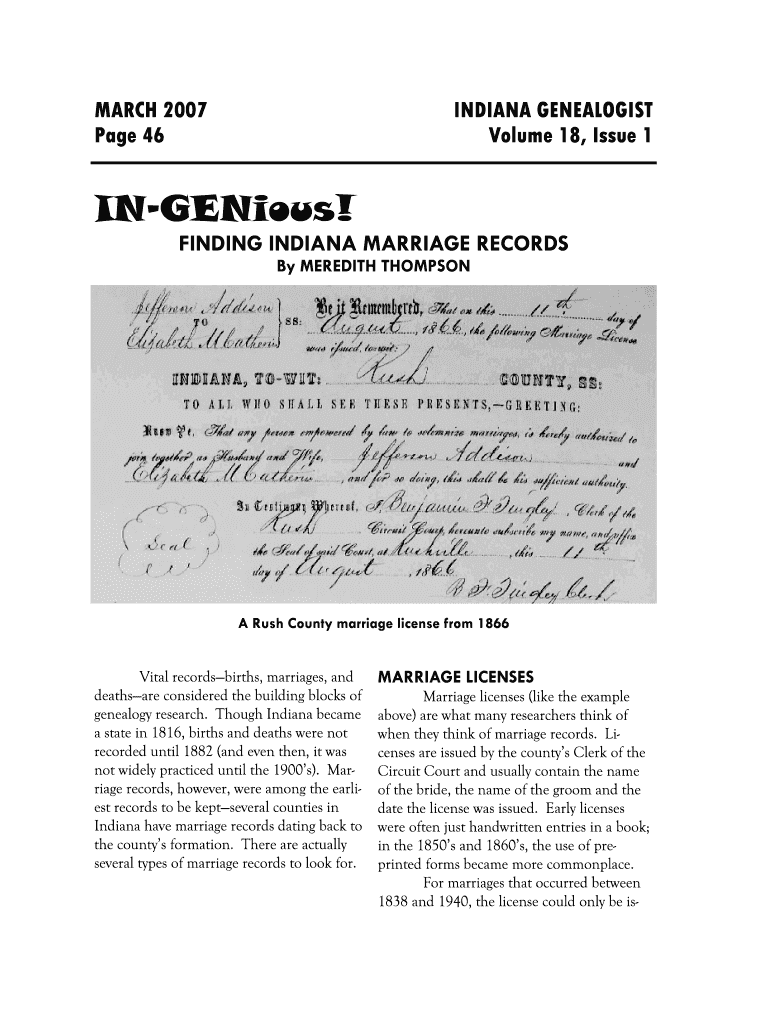 MARCH 2007 INDIANA GENEALOGIST
Page 46 Volume 18, Issue 1
IN-GENious!
FINDING INDIANA MARRIAGE RECORDS
By MEREDITH THOMPSON
Jefferson Addison
TO
Elizabeth McCatherin
SS:
Be it Remembered, That on this 11th day of
August, 1866, the following Marriage License
was issued, to-wit:
INDIANA, TO-WIT: Rush COUNTY, SS:
TO ALL WHO SHALL SEE THESE PRESENTS,—GREETING:
Know Ye, That any person empowered by law to solemnize marriages, is hereby authorized to
join together as Husband and Wife, Jefferson Addison and
Elizabeth McCatherin, and for so doing, this shall be his sufficient authority.
In Testimony Whereof, I, Benjamin F. Tingley, Clerk of the
Rush Circuit Court, hereunto subscribe my name, and affix
the Seal of said Court, at Rushville, this 11th
day of August, 1866
Seal
B F Tingley Clerk
A Rush County marriage license from 1866
Vital records—births, marriages, and
deaths—are considered the building blocks of
genealogy research. Though Indiana became
a state in 1816, births and deaths were not
recorded until 1882 (and even then, it was
not widely practiced until the 1900's). Mar-
riage records, however, were among the earli-
est records to be kept—several counties in
Indiana have marriage records dating back to
the county's formation. There are actually
several types of marriage records to look for.
MARRIAGE LICENSES
Marriage licenses (like the example
above) are what many researchers think of
when they think of marriage records. Li-
censes are issued by the county's Clerk of the
Circuit Court and usually contain the name
of the bride, the name of the groom and the
date the license was issued. Early licenses
were often just handwritten entries in a book;
in the 1850's and 1860's, the use of pre-
printed forms became more commonplace.
For marriages that occurred between
1838 and 1940, the license could only be is-